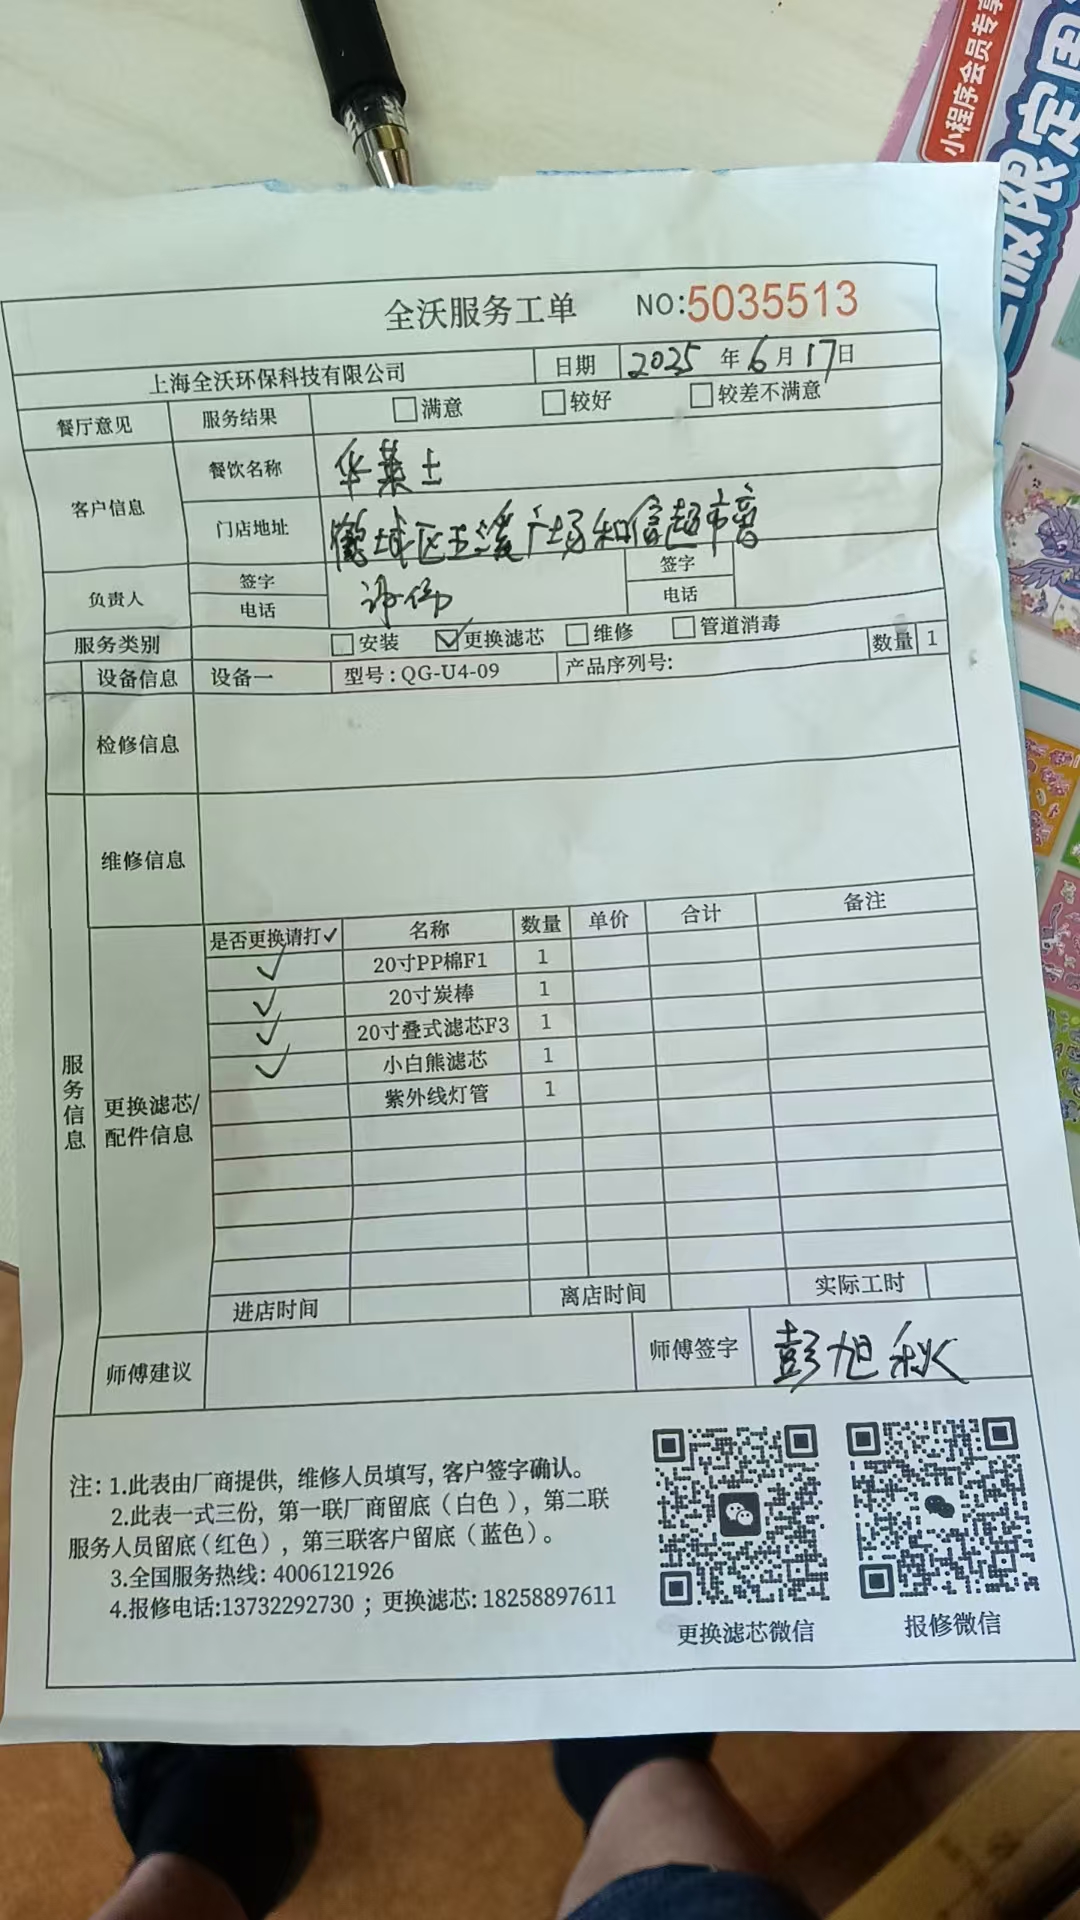 小程序会员专享
限定周
全沃服务工单 NO:5035513
上海全沃环保科技有限公司 日期 2025 年 6 月 17 日
餐厅意见 服务结果 满意 较好 较差不满意
客户信息 餐饮名称 华莱士
门店地址 鹤城区五溪广场和信超市旁
负责人 签字 签字
电话 电话
服务类别 安装 更换滤芯 维修 管道消毒
设备信息 设备一 型号:QG-U4-09 产品序列号: 数量 1
检修信息
维修信息
服务信息
更换滤芯/
配件信息
是否更换请打✓ 名称 数量 单价 合计 备注
✓ 20寸PP棉F1 1
✓ 20寸炭棒 1
✓ 20寸叠式滤芯F3 1
✓ 小白熊滤芯 1
紫外线灯管 1
进店时间 离店时间 实际工时
师傅建议 师傅签字 彭旭秋
注: 1.此表由厂商提供, 维修人员填写, 客户签字确认。
2.此表一式三份, 第一联厂商留底（白色）, 第二联
服务人员留底(红色）, 第三联客户留底（蓝色）。
3.全国服务热线: 4006121926
4.报修电话:13732292730 ; 更换滤芯: 18258897611
更换滤芯微信 报修微信